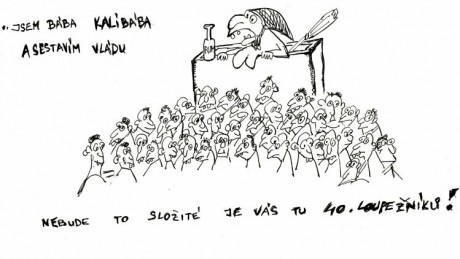 .. JSEM BÁBA KALIBÁBA
A SESTAVÍM VLÁDU
RUM
NEBUDE TO SLOŽITÉ JE VÁS TU 40. LOUPEŽNÍKŮ!